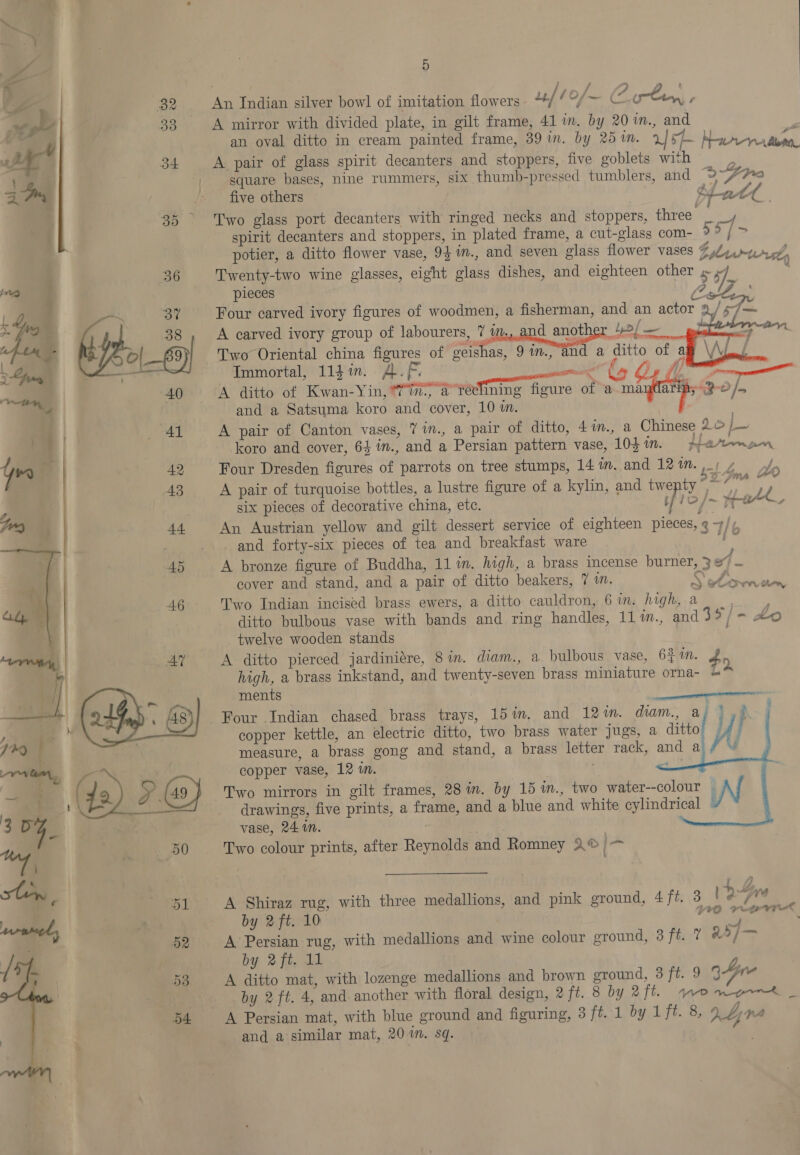 5
32 An Indian silver bowl of imitation flowers 4/10/-
33 A mirror with divided plate, in gilt frame, 41 in. by 20 in., and
an oval ditto in cream painted frame, 39 in. by 25 in. 2/5/-
34 A pair of glass spirit decanters and stoppers, five goblets with
square bases, nine rummers, six thumb-pressed tumblers, and
five others
35 Two glass port decanters with ringed necks and stoppers, three
spirit decanters and stoppers, in plated frame, a cut-glass com- 55/-
potier, a ditto flower vase, 9½ in., and seven glass flower vases
36 Twenty-two wine glasses, eight glass dishes, and eighteen other
pieces
37 Four carved ivory figures of woodmen, a fisherman, and an actor 2/5/-
38 A carved ivory group of labourers, 7 in., and another 40/-
39 Two Oriental china figures of geishas, 9 in., and a ditto of an
Immortal, 11½ in. A.F.
40 A ditto of Kwan-Yin, 7 in., a reclining figure of a mandarin, 30/-
and a Satsuma koro and cover, 10 in.
41 A pair of Canton vases, 7 in., a pair of ditto, 4 in., a Chinese 20/-
koro and cover, 6½ in., and a Persian pattern vase, 10½ in.
42 Four Dresden figures of parrots on tree stumps, 14 in. and 12 in. do
43 A pair of turquoise bottles, a lustre figure of a kylin, and twenty
six pieces of decorative china, etc. 4/10/-
44 An Austrian yellow and gilt dessert service of eighteen pieces, 37/6
and forty-six pieces of tea and breakfast ware
45 A bronze figure of Buddha, 11 in. high, a brass incense burner, 30/-
cover and stand, and a pair of ditto beakers, 7 in.
46 Two Indian incised brass ewers, a ditto cauldron, 6 in. high, a
ditto bulbous vase with bands and ring handles, 11 in., and 35/- do
twelve wooden stands
47 A ditto pierced jardinière, 8 in. diam., a bulbous vase, 6¾ in.
high, a brass inkstand, and twenty-seven brass miniature orna-
ments
48 Four Indian chased brass trays, 15 in. and 12 in. diam., a
copper kettle, an electric ditto, two brass water jugs, a ditto
measure, a brass gong and stand, a brass letter rack, and a
copper vase, 12 in.
49 Two mirrors in gilt frames, 28 in. by 15 in., two water--colour
drawings, five prints, a frame, and a blue and white cylindrical
vase, 24 in.
50 Two colour prints, after Reynolds and Romney 20/-
51 A Shiraz rug, with three medallions, and pink ground, 4 ft. 3
by 2 ft. 10
52 A Persian rug, with medallions and wine colour ground, 3 ft. 7 25/-
by 2 ft. 11
53 A ditto mat, with lozenge medallions and brown ground, 3 ft. 9
by 2 ft. 4, and another with floral design, 2 ft. 8 by 2 ft.
54 A Persian mat, with blue ground and figuring, 3 ft. 1 by 1 ft. 8,
and a similar mat, 20 in. sq.